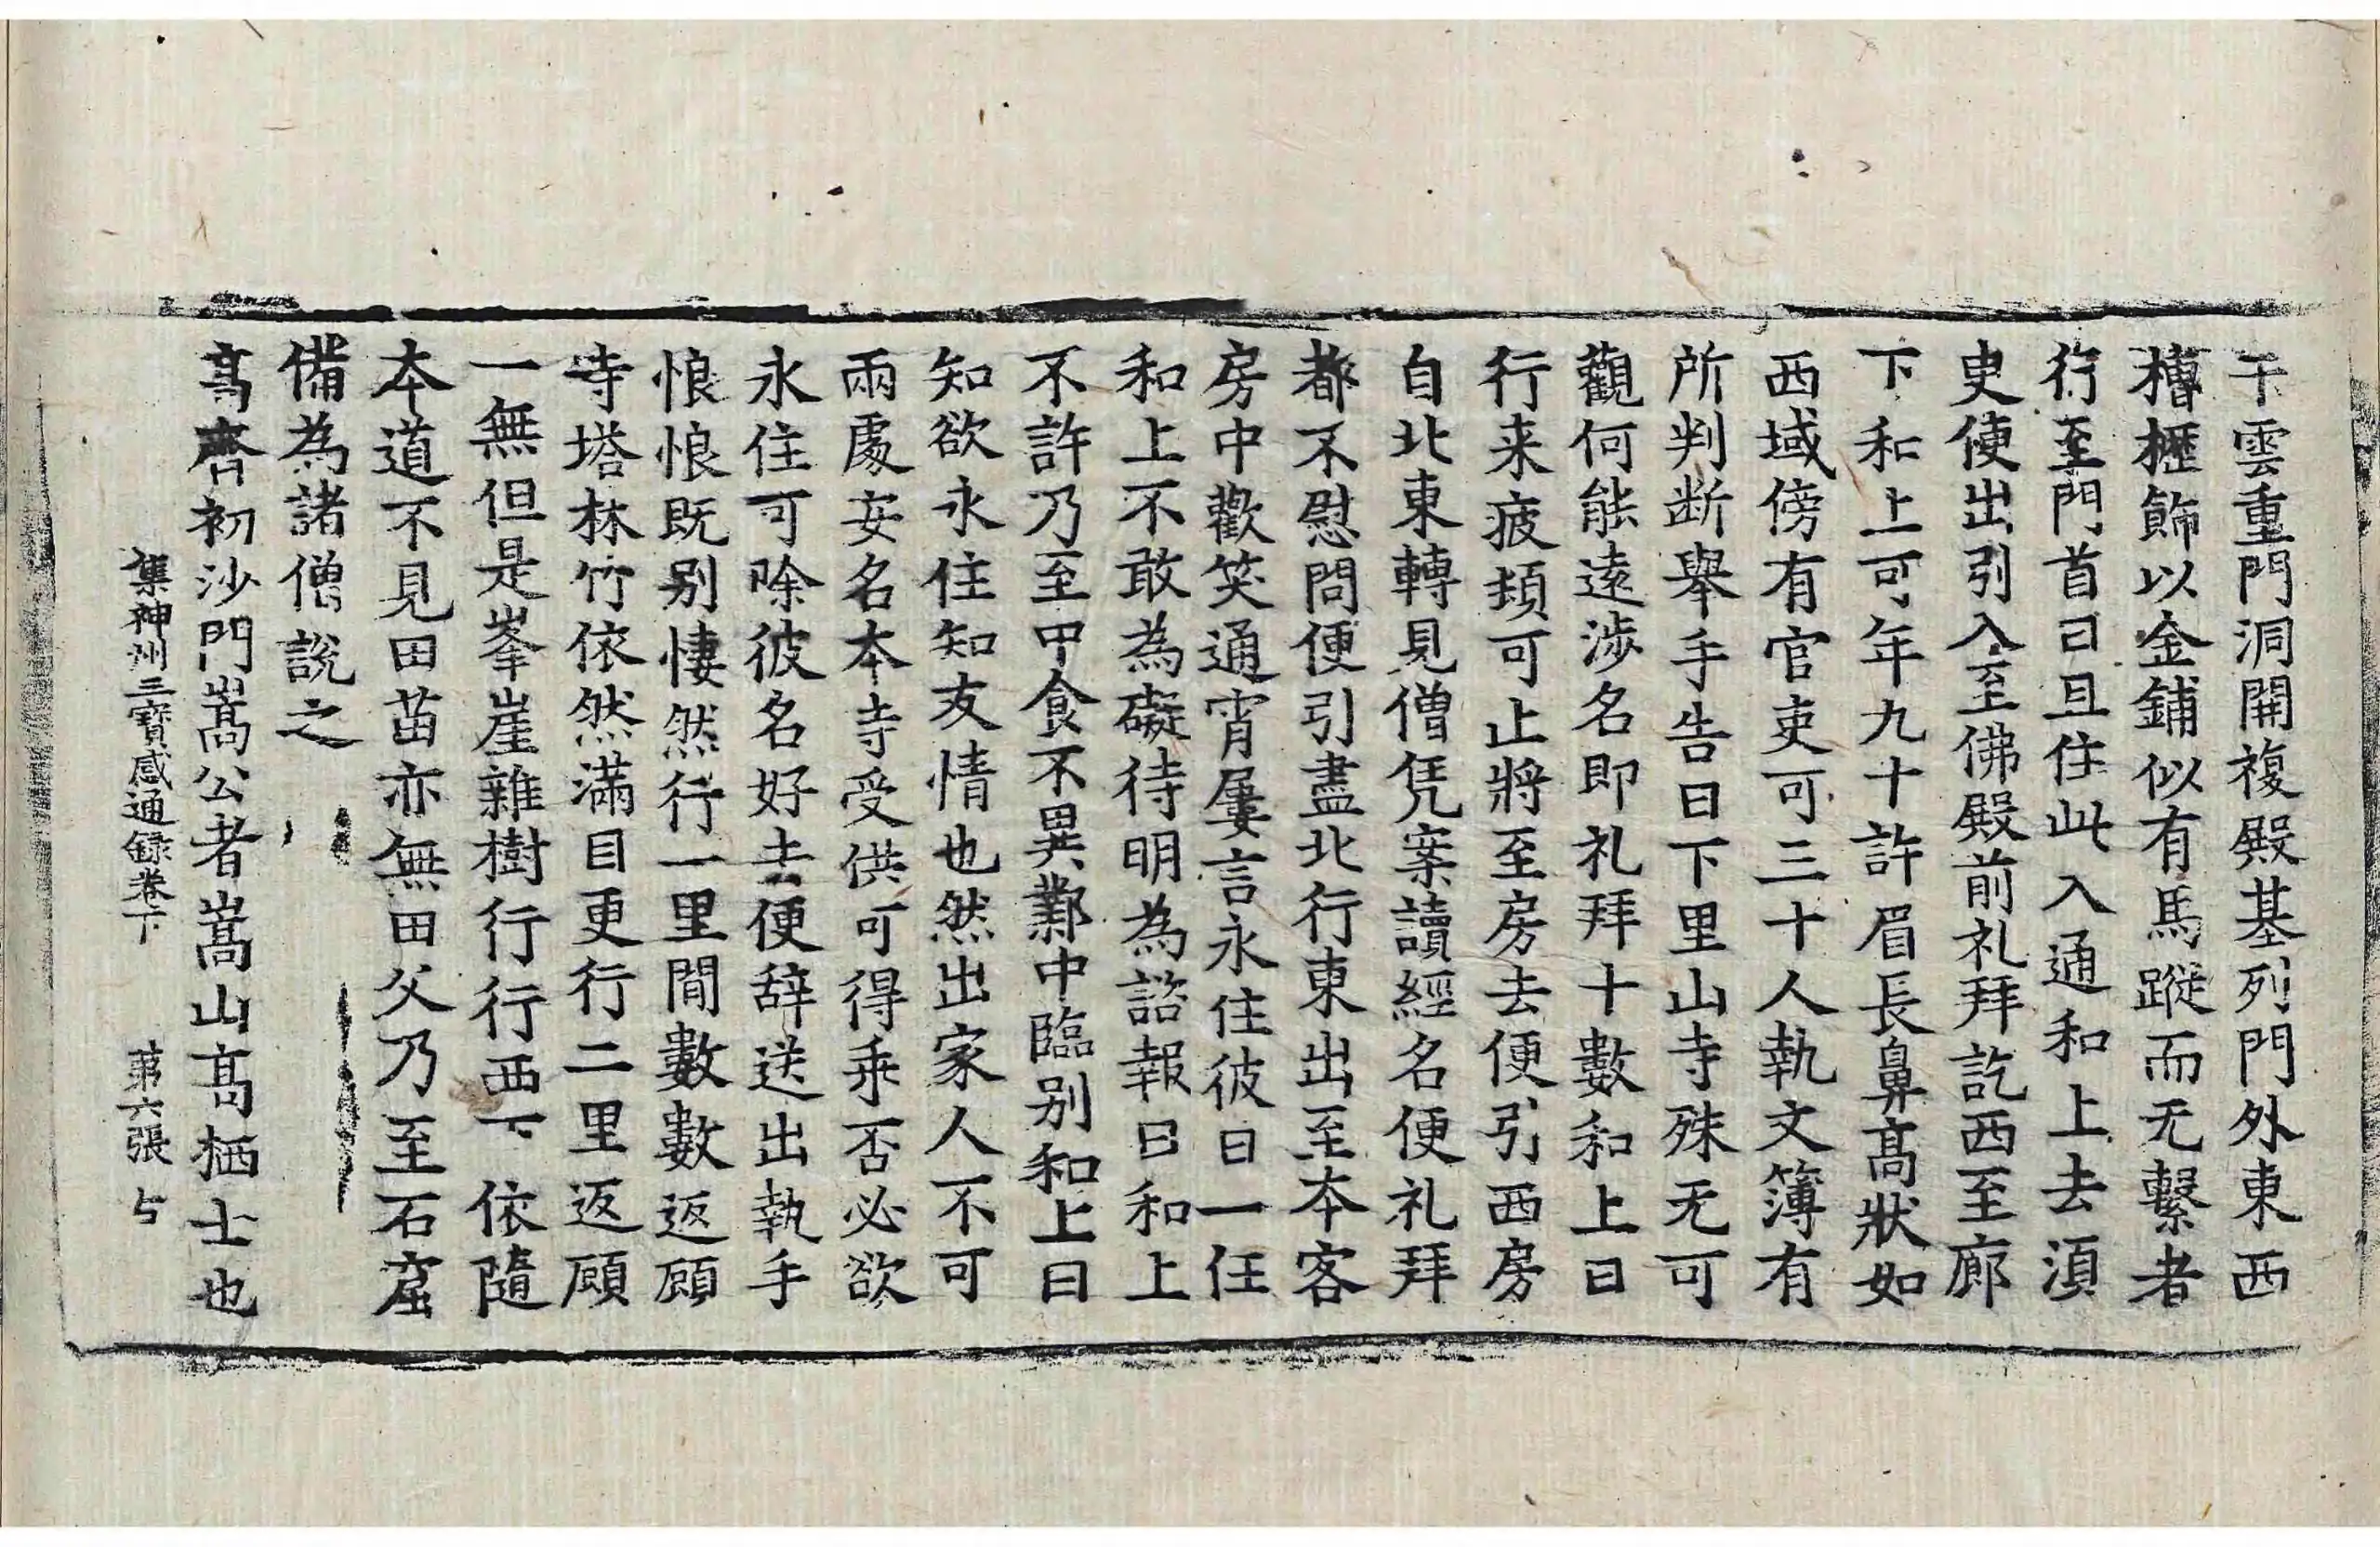 干雲重門洞開複殿基列門外東西
槽櫪飾以金鋪似有馬蹤而无繫者
行至門首曰且住此入通和上去須
臾便出引入至佛殿前礼拜訖西至廊
下和上可年九十許眉長鼻髙狀如
西域傍有官吏可三十人執文簿有
所判断舉手告曰下里山寺殊无可
觀何能遠涉名即礼拜十數和上曰
行来疲頓可止將至房去便引西房
自北東轉見僧凭案讀經名便礼拜
都不慰問便引盡北行東出至本客
房中歡笑通宵屢言永住彼曰一任
和上不敢為礙待明為諮報曰和上
不許乃至甲食不異鄴中臨别和上曰
知欲永住知友情也然出家人不可
兩處安名本寺受供可得乖否必欲
永住可除彼名好去便辞送出執手
悢悢既别悽然行一里間數數返顧
寺塔林竹依然滿目更行二里返顧
一無但是峯崖雜樹行行西下依隨
本道不見田苗亦無田父乃至石窟
備為諸僧說之
髙齊初沙門嵩公者嵩山髙栖士也
集神州三寳感通録卷下 苐六張 与